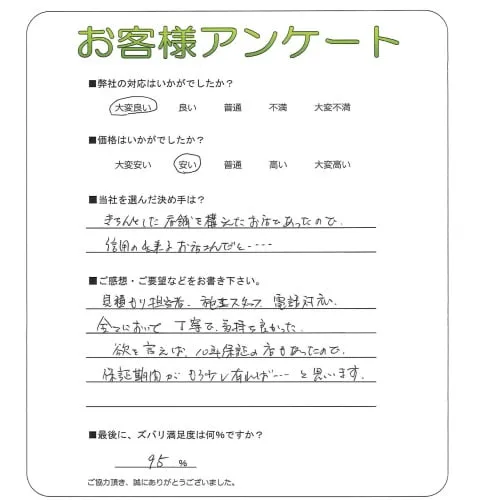 お客様アンケート
■弊社の対応はいかがでしたか？
大変良い 良い 普通 不満 大変不満
■価格はいかがでしたか？
大変安い 安い 普通 高い 大変高い
■当社を選んだ決め手は？
きちんとした店舗を構えたお店であったので、
信用の出来るお店さんだと‥‥
■ご感想・ご要望などをお書き下さい。
見積もり担当者、施工スタッフ、電話対応、
全てにおいて丁寧で、気持ち良かった。
欲を言えば、10年保証の店もあったので、
保証期間がもう少し有れば‥‥と思います。
■最後に、ズバリ満足度は何%ですか？
95 %
ご協力頂き、誠にありがとうございました。